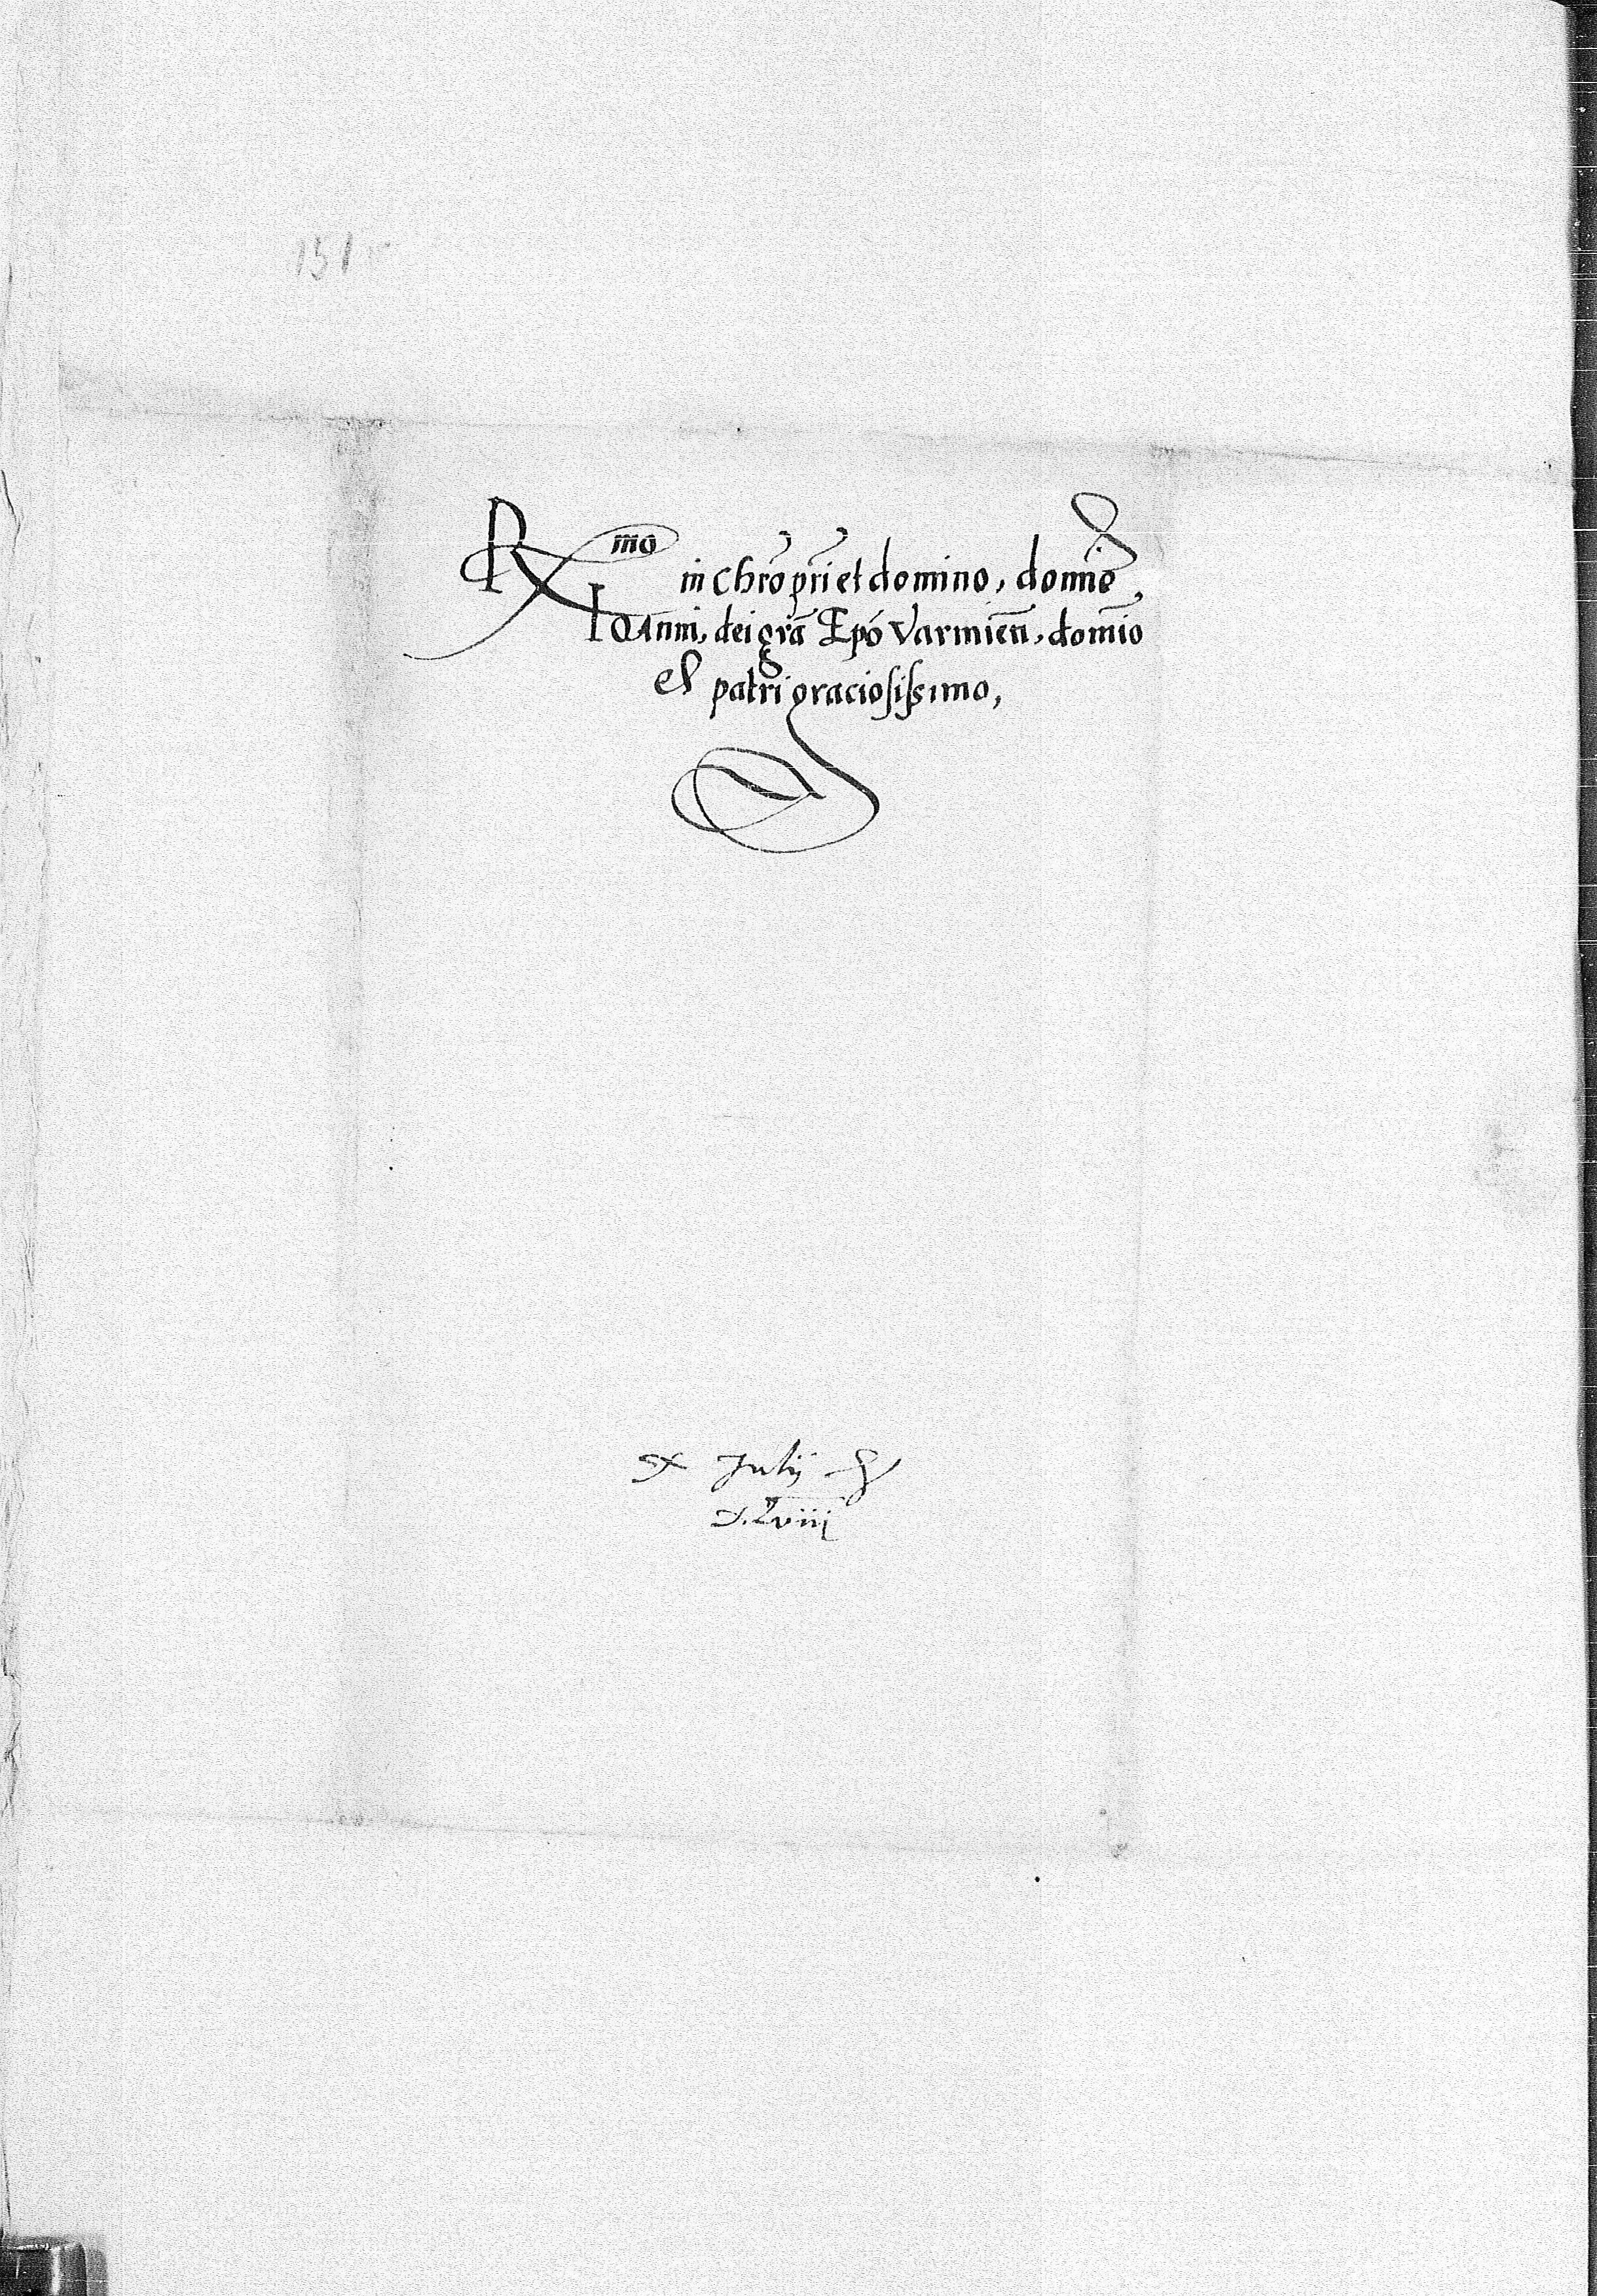 151
R mo in Chro pri et domino, domino,
Ioanni, dei gra Epo Varmien, domino
et patri graciosissimo,
Julii